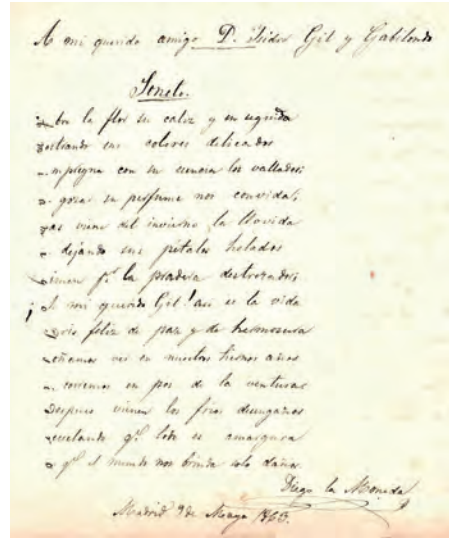 A mi querido amigo D. Isidor Gil y Gabilondo
Soneto.
Abre la flor su caliz y en seguida
mostrando sus colores delicados
impregna con su esencia los vallados;
a gozar su perfume nos convida,
mas viene del invierno la llovida
y dejando sus pétalos helados
p.r la pradera destrozados;
¡A mi querido Gil! asi es la vida
feliz de paz y de hermosura
soñamos ver en nuestros tiernos años
y corremos en pos de la ventura
Despues vienen los frios desengaños
revelando q.e todo es amargura
y q.e el mundo nos brinda solo daños.
Diego la Moneda
Madrid 9 de Mayo 1865.